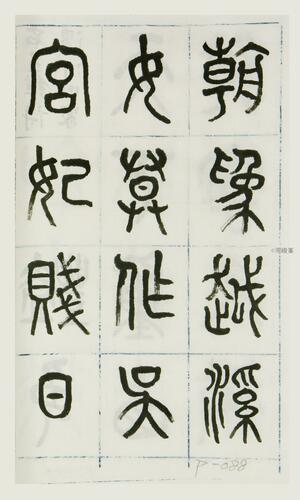 朝為越溪
女莫作吳
宮妃賤日
P-088